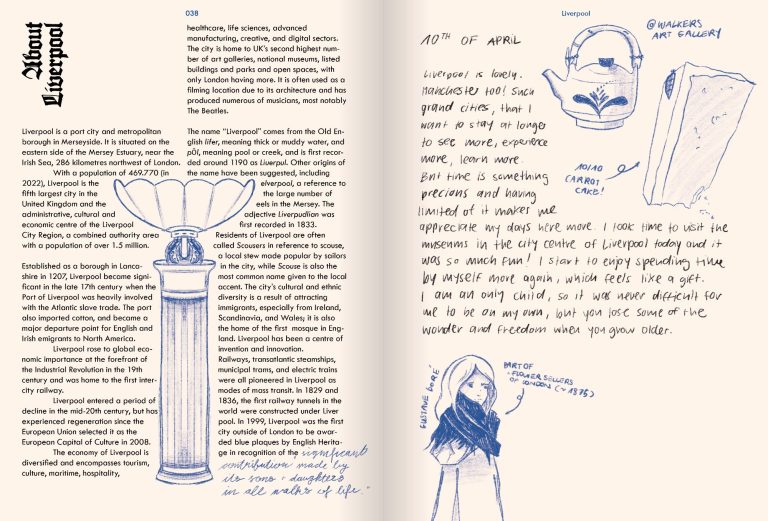 038
About
Liverpool
Liverpool is a port city and metropolitan
borough in Merseyside. It is situated on the
eastern side of the Mersey Estuary, near the
Irish Sea, 286 kilometres northwest of London.
With a population of 469.770 (in
2022), Liverpool is the
fifth largest city in the
United Kingdom and the
administrative, cultural and
economic centre of the Liverpool
City Region, a combined authority area
with a population of over 1.5 million.
Established as a borough in Lanca-
shire in 1207, Liverpool became signi-
ficant in the late 17th century when the
Port of Liverpool was heavily involved
with the Atlantic slave trade. The port
also imported cotton, and became a
major departure point for English and
Irish emigrants to North America.
Liverpool rose to global eco-
nomic importance at the forefront of
the Industrial Revolution in the 19th
century and was home to the first inter-
city railway.
Liverpool entered a period of
decline in the mid-20th century, but has
experienced regeneration since the
European Union selected it as the
European Capital of Culture in 2008.
The economy of Liverpool is
diversified and encompasses tourism,
culture, maritime, hospitality,
healthcare, life sciences, advanced
manufacturing, creative, and digital sectors.
The city is home to UK's second highest num-
ber of art galleries, national museums, listed
buildings and parks and open spaces, with
only London having more. It is often used as a
filming location due to its architecture and has
produced numerous of musicians, most notably
The Beatles.
The name "Liverpool" comes from the Old En-
glish lifer, meaning thick or muddy water, and
pōl, meaning pool or creek, and is first recor-
ded around 1190 as Liuerpul. Other origins of
the name have been suggested, including
elverpool, a reference to
the large number of
eels in the Mersey. The
adjective Liverpudlian was
first recorded in 1833.
Residents of Liverpool are often
called Scousers in reference to scouse,
a local stew made popular by sailors
in the city, while Scouse is also the
most common name given to the local
accent. The city's cultural and ethnic
diversity is a result of attracting
immigrants, especially from Ireland,
Scandinavia, and Wales; it is also
the home of the first mosque in Eng-
land. Liverpool has been a centre of
invention and innovation.
Railways, transatlantic steamships,
municipal trams, and electric trains
were all pioneered in Liverpool as
modes of mass transit. In 1829 and
1836, the first railway tunnels in the
world were constructed under Liver
pool. In 1999, Liverpool was the first
city outside of London to be awar-
ded blue plaques by English Herita-
ge in recognition of the "significant
contribution made by
its sons + daughters
in all walks of life."
Liverpool
10TH OF APRIL
@WALKERS
ART GALLERY
Liverpool is lovely.
Manchester too! Such
grand cities, that I
want to stay at longer
to see more, experience
more, learn more.
But time is something
precious and having
limited of it makes me
appreciate my days here more. I took time to visit the
museums in the city centre of Liverpool today and it
was so much fun! I start to enjoy spending time
by myself more again, which feels like a gift.
I am an only child, so it was never difficult for
me to be on my own, but you lose some of the
wonder and freedom when you grow older.
10/10
CARROT
CAKE!
GUSTAVE DORÉ
PART OF
"FLOWER SELLERS
OF LONDON (~1875)